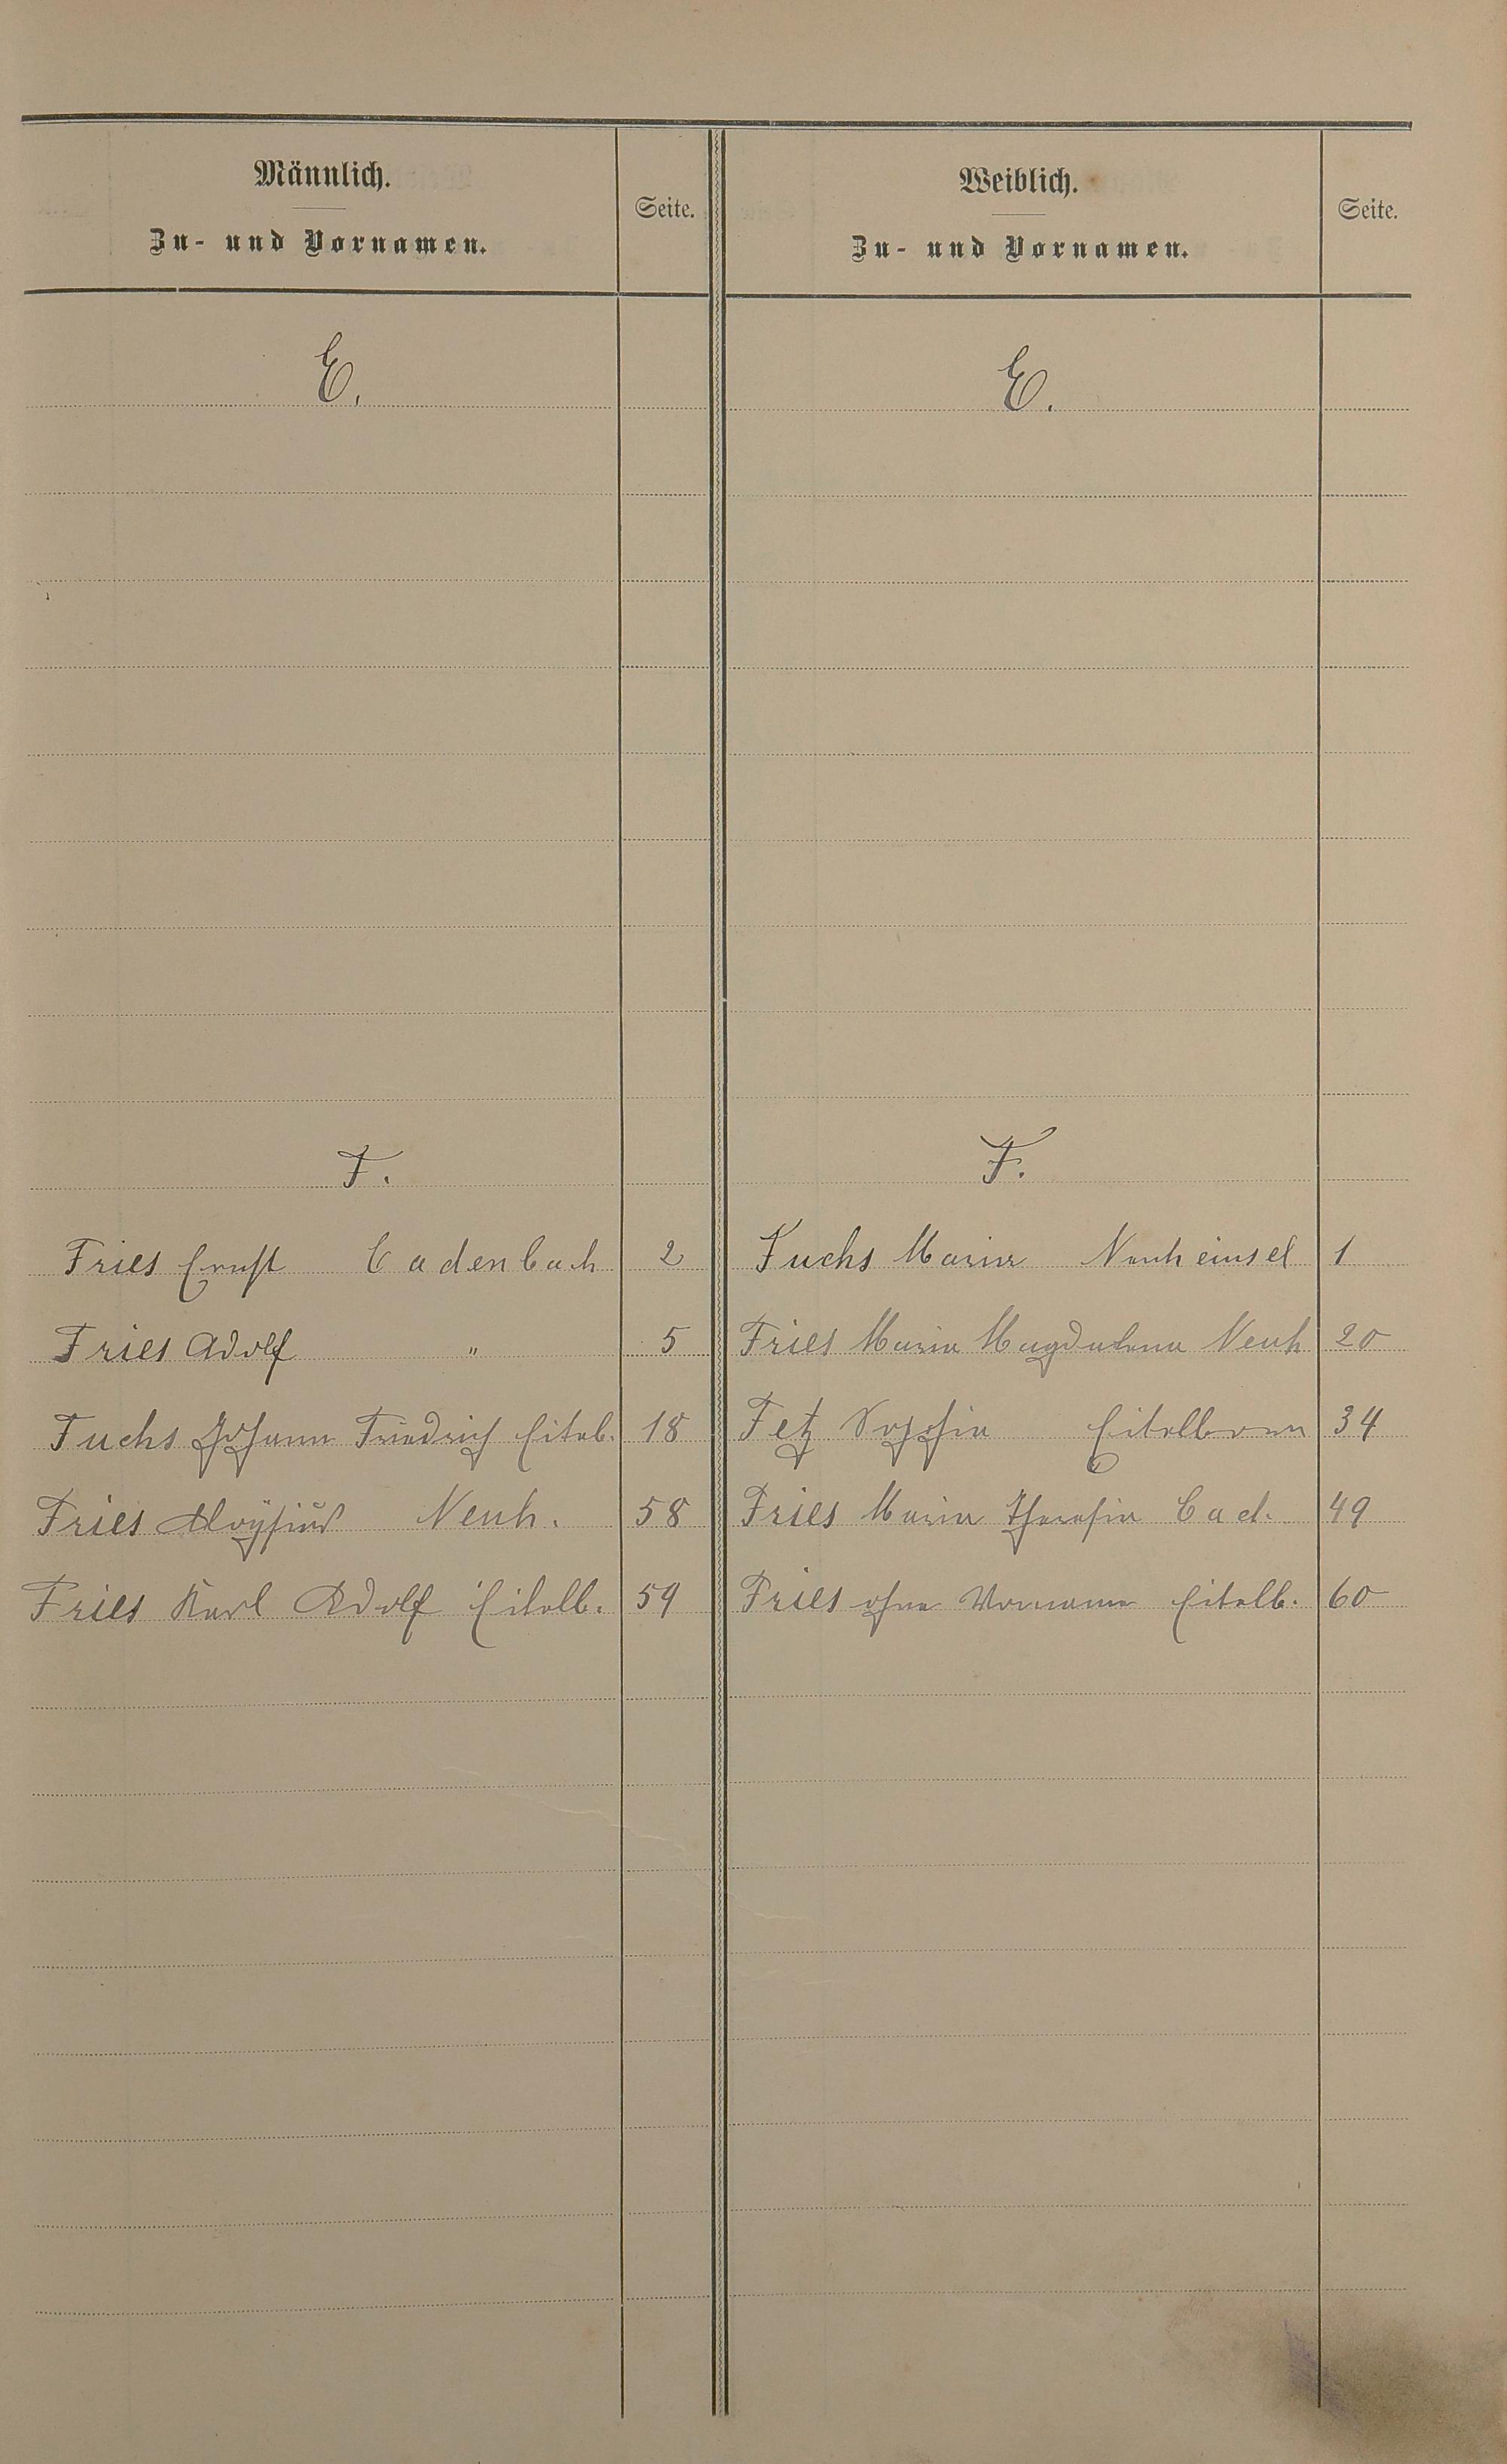 Männlich.
Zu- und Vornamen.
Seite.
Weiblich.
Zu- und Vornamen.
Seite.
E.
E.
F.
F.
Fries Ernst Cadenbach 2
Fuchs Maria Neuheusel 1
Fries Adolf " 5
Fries Maria Magdalena Neuh 20
Fuchs Johann Friedrich Eitelb. 18
Fetz Sophia Eitelborn 34
Fries Aloysius Neuh. 58
Fries Maria Theresia Cad. 49
Fries Karl Adolf Eitelb. 59
Fries ohne Vorname Eitelb. 60